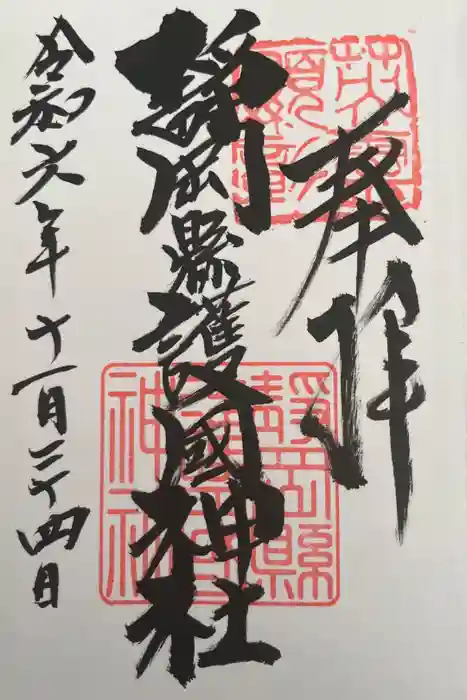 奉拝
靜岡縣護國神社
令和六年十一月二十四日
靜岡縣護國神社